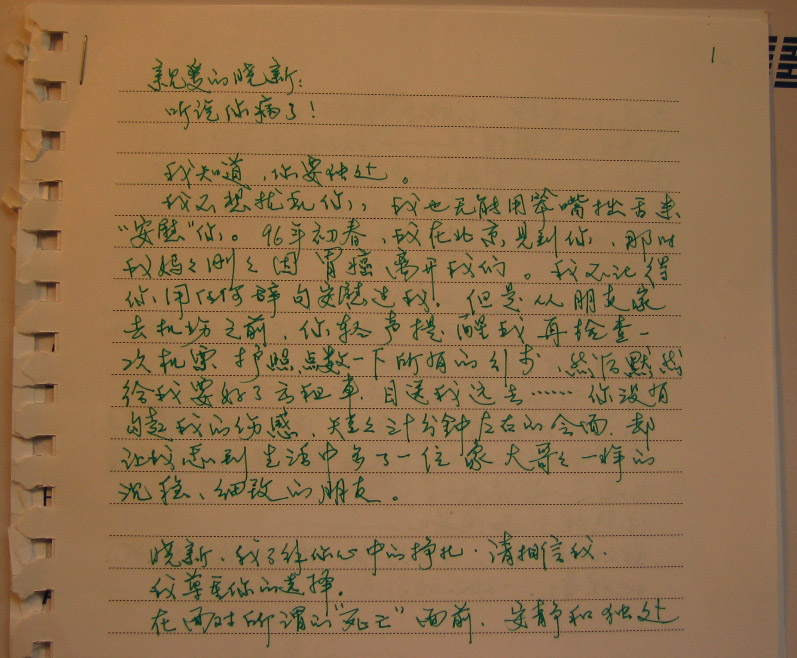 1
亲爱的晓新:
听说你病了!
我知道,你要独处。
我不想扰乱你,我也无能用笨嘴拙舌来
“安慰”你。96年初春,我在北京见到你,那时
我妈妈刚刚因胃癌离开我们。我不记得
你用任何辞句安慰过我。但是从朋友家
去机场之前,你轻声提醒我再检查一
次机票护照,点数一下所有的行李,然后默默
给我要好了出租车,目送我远去……你没有
勾起我的伤感,短短三十分钟左右的会面,却
让我感到生活中多了一位象大哥哥一样的
沉稳、细致的朋友。
晓新,我了解你心中的挣扎,请相信我,
我尊重你的选择。
在面对所谓的“死亡”面前,安静和独处